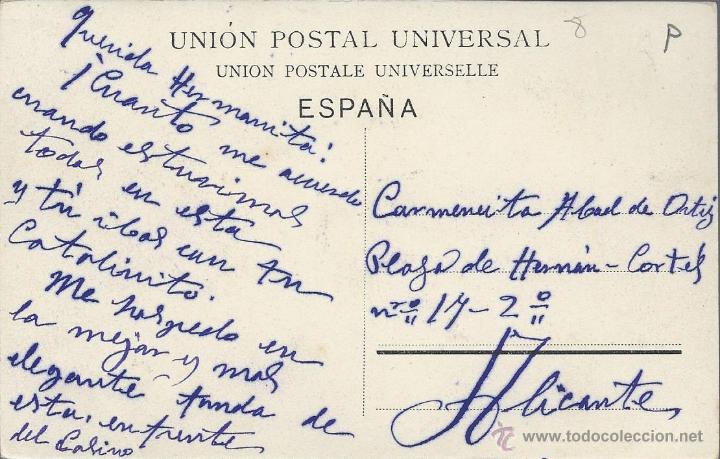 UNIÓN POSTAL UNIVERSAL
UNION POSTALE UNIVERSELLE
ESPAÑA
8
P
Querida Hermanita:
¡Cuanto me acuerdo
cuando estuvimos
todas en esta
y tú ibas con tu
Catalinito.
Me hospedo en
la mejor y mas
elegante fonda de
esta, en frente
del Casino
Carmencita Abad de Ortiz
Plaza de Hernán-Cortés
nº 14-2º
Alicante
© www.todocoleccion.net